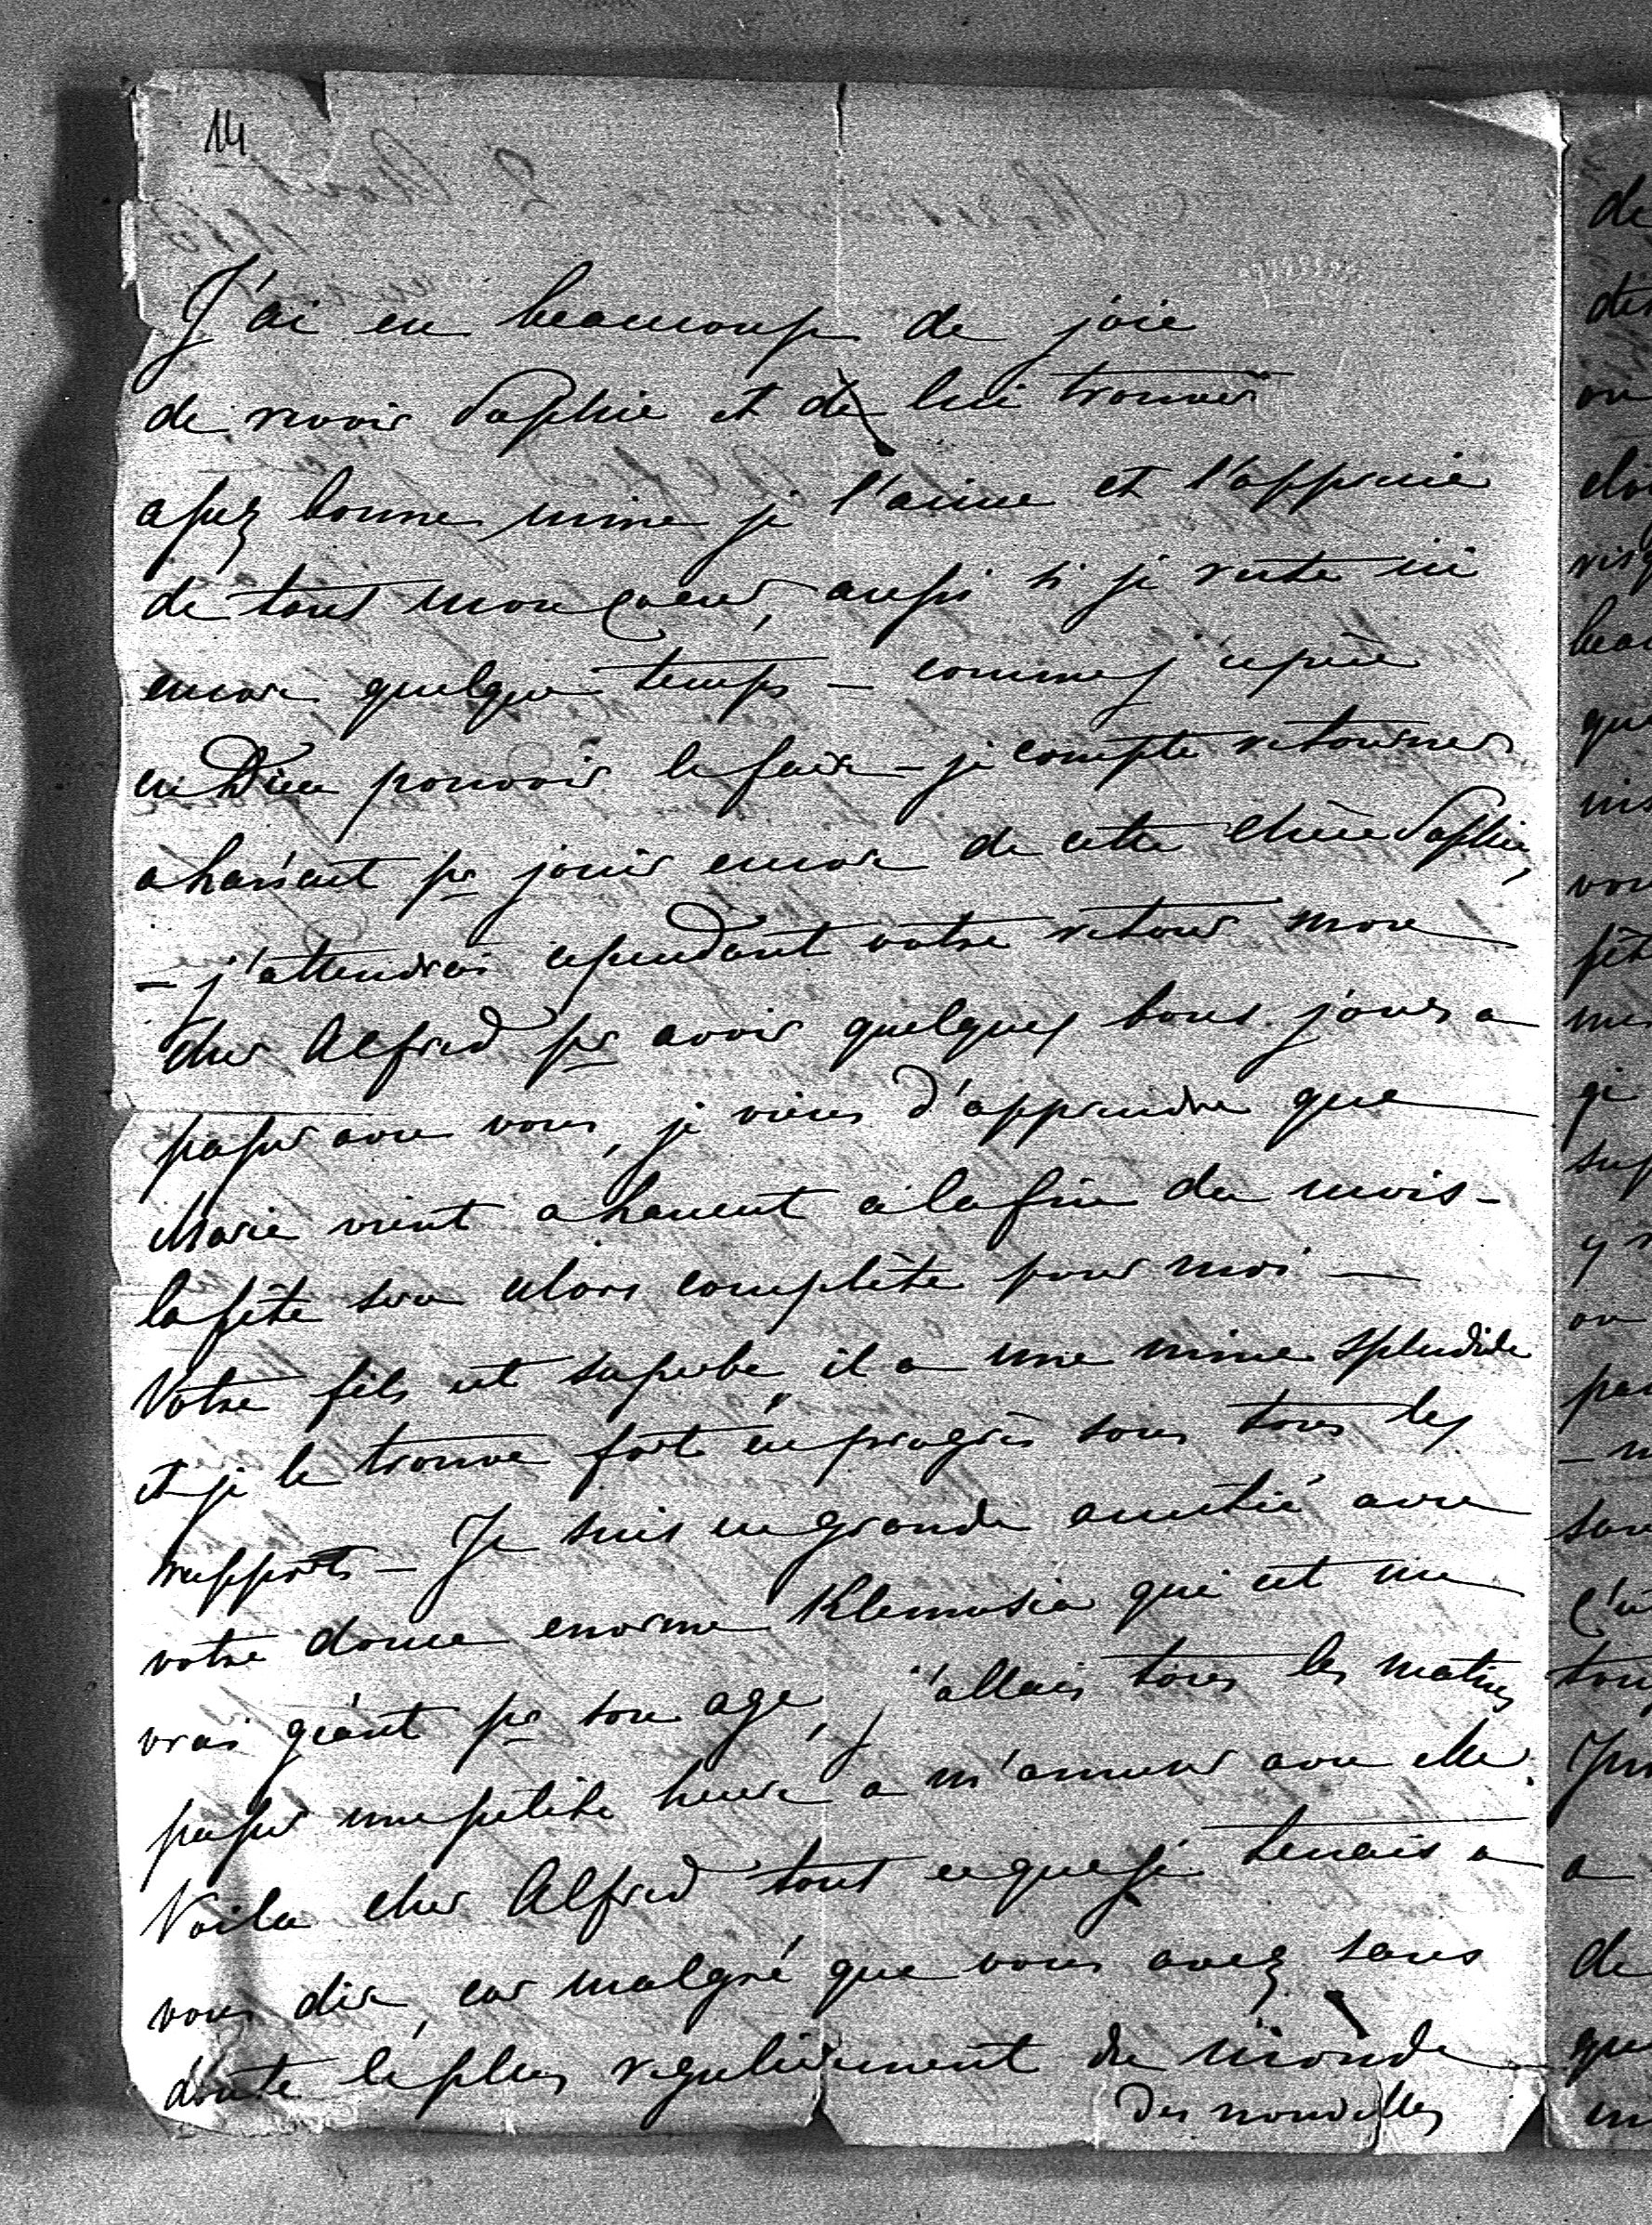 14
J'ai eu beaucoup de joie
de revoir Sophie et de lui trouver
assez bonne mine je l'aime et l'apprecie
de tout mon coeur, aussi si je reste ici
encore quelque temps – comme j'espère
en Dieu pouvoir le faire – je compte retourner
a pr jouir encore de cette chère Sophie,
– j'attendrai cependant votre retour mon
cher Alfred pr avoir quelques bons jours a
passer avec vous, je viens d'apprendre que
Marie vient a à la fin du mois –
la fête sera alors complète pour moi –
Votre fils est superbe il a une mine splendide
et je le trouve fort en progrès sous tous les
rapports – Je suis en grande amitié avec
votre douce enorme qui est un
vrai géant pr son age, j'allais tous les matins
passer une petite heure a m'amuser avec elle.
Voila cher Alfred tout ce que je tenais a
vous dire, car malgré que vous avez sans
doute le plus regulièrement du monde
des nouvelles